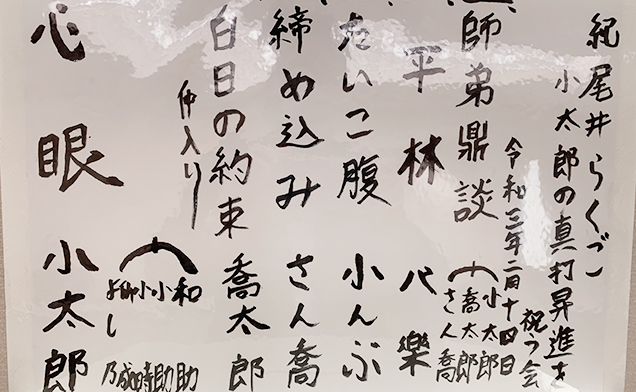 紀尾井らくご
小太郎の真打昇進を
祝う会
令和三年二月十四日
師弟鼎談
小太郎
喬太郎
さん喬
平林 八楽
たいこ腹 小んぶ
締め込み さん喬
白日の約束 喬太郎
仲入り
和助
小助
小時
よし乃
心眼 小太郎